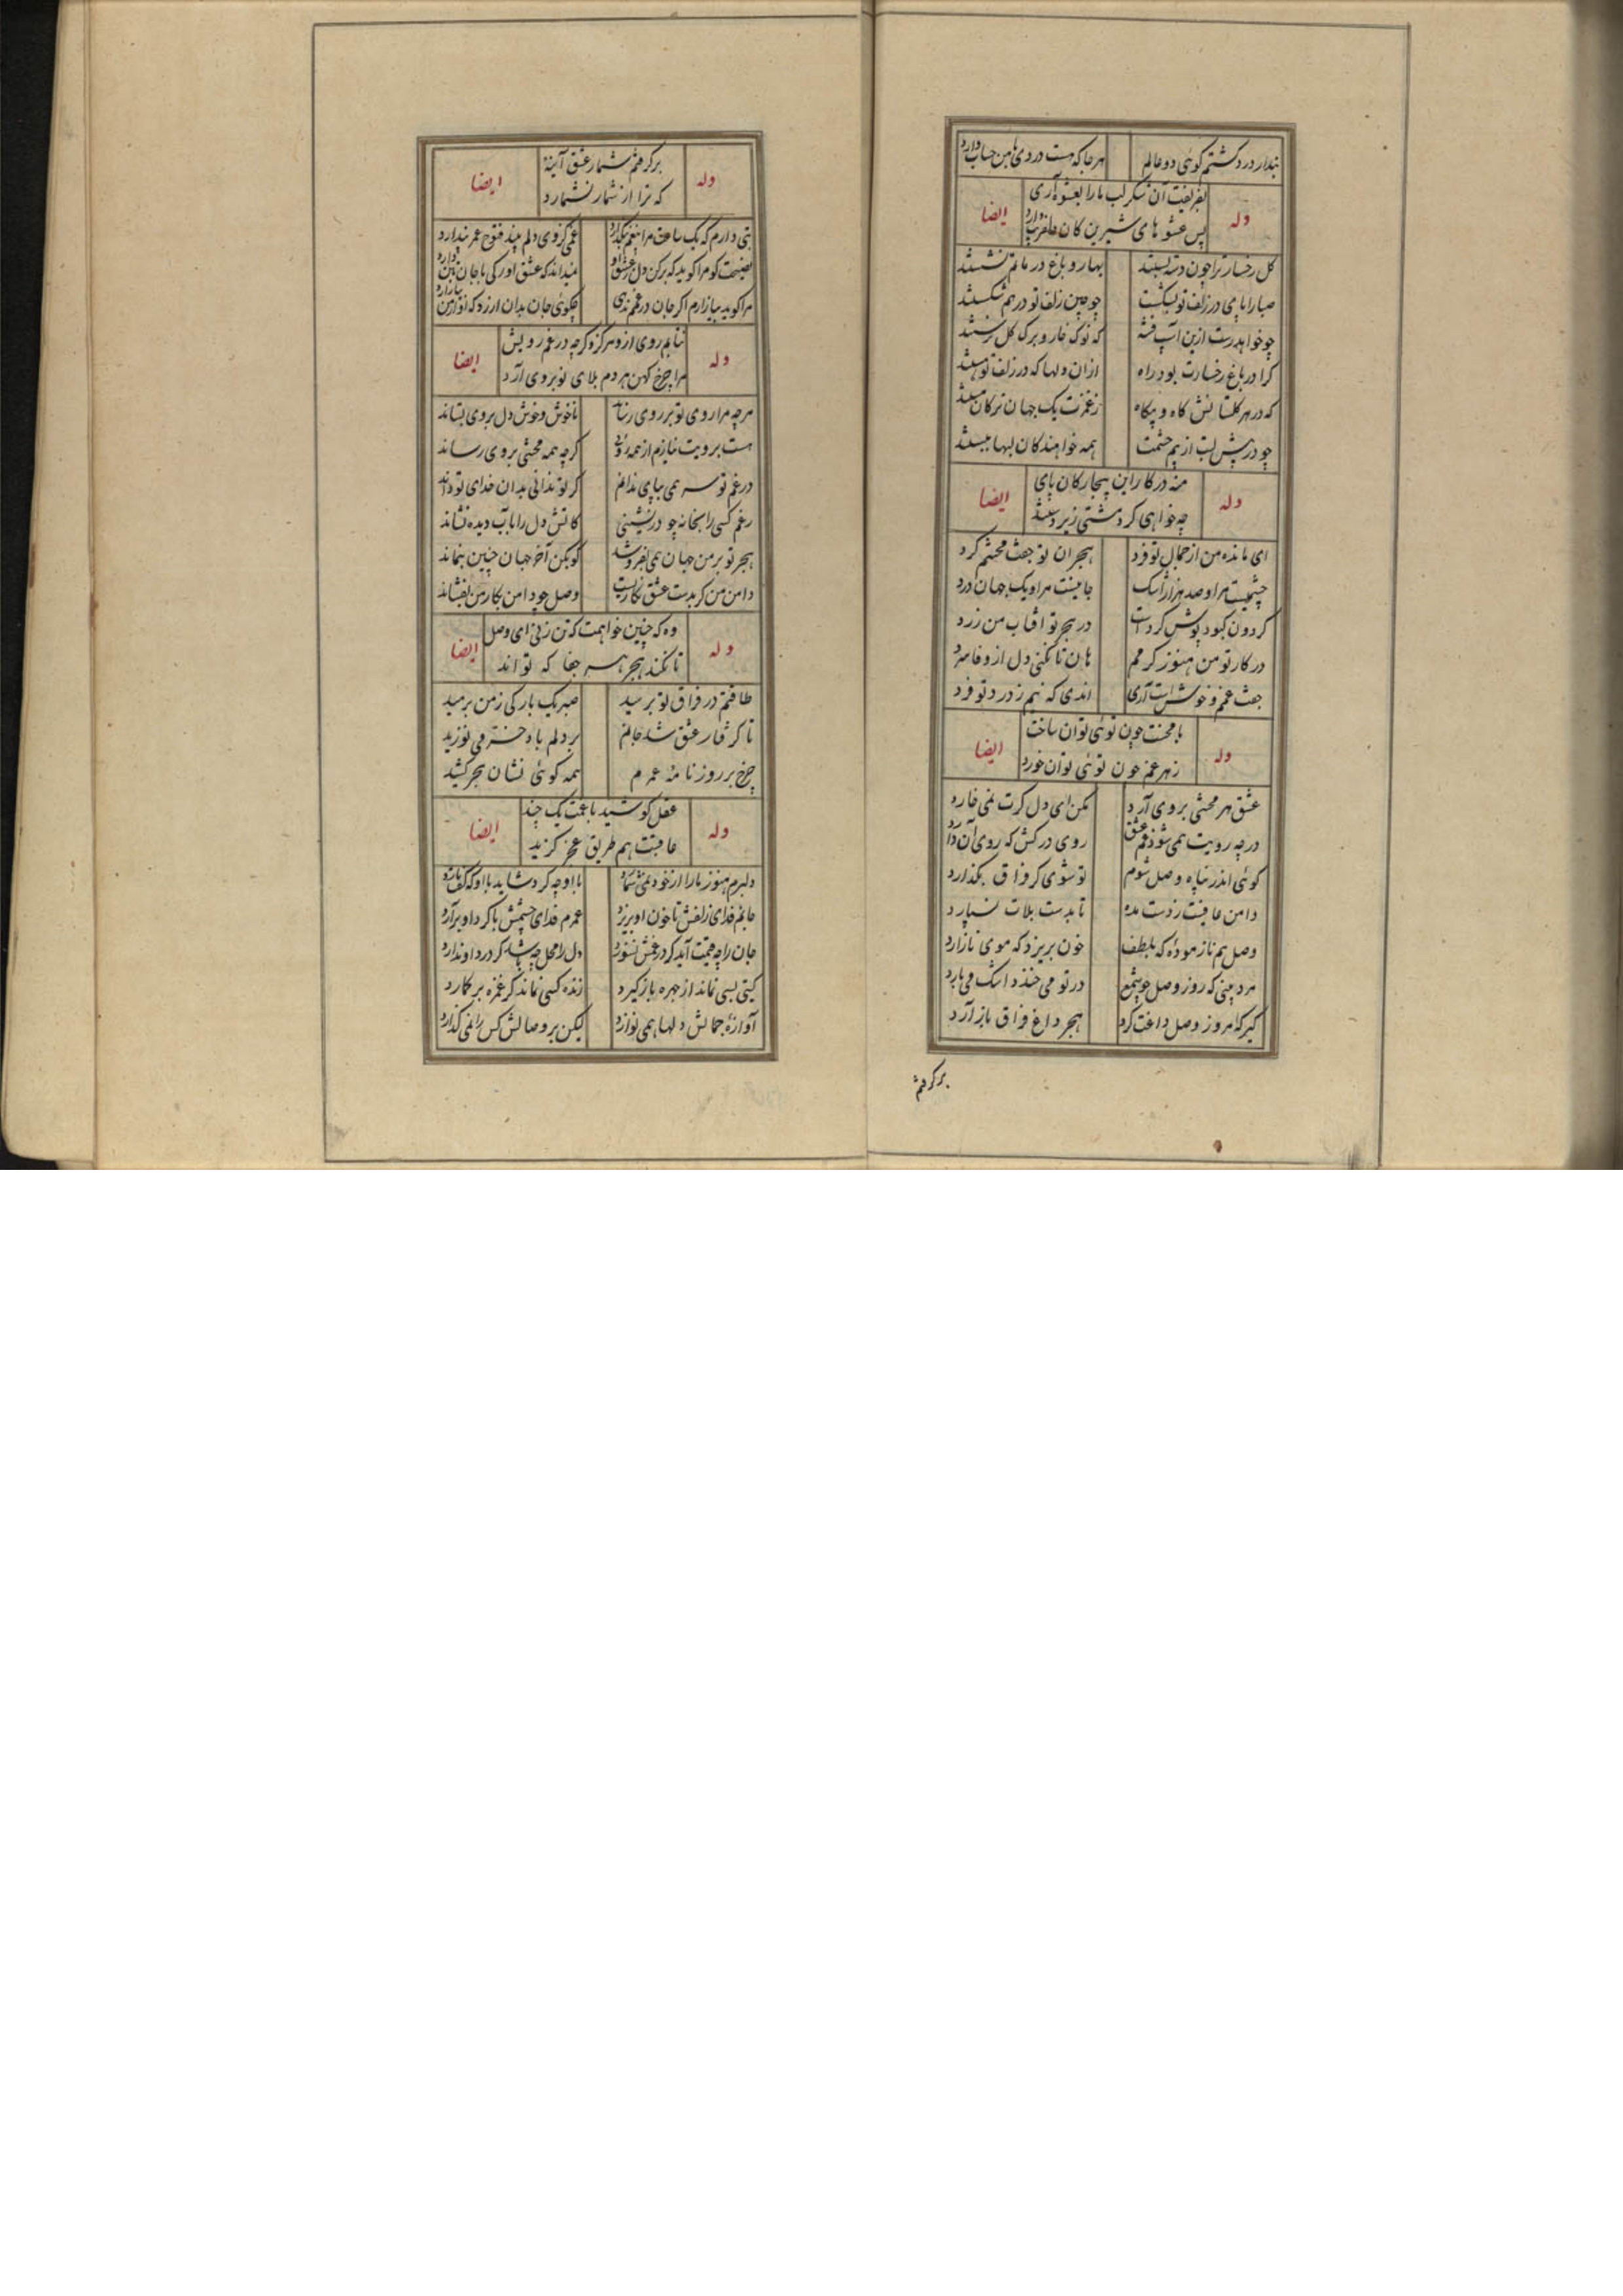 پندار درد گشتم گوئی دو عالم هرجا که هست دردی با من حساب دارد
وله بفریفت آن شکر لب ما را بعشوه آری ایضا
بس عشوهای شیرین کان
گل رخسار ترا چون دسته بستند بهار و باغ در ماتم نشستند
صبا را پای در زلف تو بشکست چو چین زلف تو درهم شکستند
چو خواهد رست ازین آب که نوک خار و برگ گل برستند
کرا در باغ رخسارت بود راه ازان دلها که در زلف تو هستند
که در هر گلستانش گاه و بیگاه ز غمزت یک جهان ترکان مستند
چو در پیش لب از بیم چشمت همه خواهندگان لبها ببستند
وله منه در کار این بیچارگان پای ایضا
چه خواهی کرد مشتی زیر دستند
ای مانده من از جمال تو فرد هجران تو جفت محنتم کرد
چشمیست مرا و صد هزار اشک جانیست مرا و یک جهان درد
گردون کبود پوش کردست در هجر تو آفتاب من زرد
در کار تو من هنوز گرمم هان تا نکنی دل از وفا سرد
جفت غم و خوشست آری اندی که نیم ز درد تو فرد
وله با محنت چون توئی توان ساخت ایضا
زهر غم چون توئی توان خورد
عشق هر محنتی بروی آرد مکن ای دل گرت نمی خارد
درچه رویت همی شوذ غم عشق روی درکش که روی آن دارد
گوئی اندر پناه وصل شوم تو شوی گر فراق بگذارد
دامن عافیت ز دست مده تا بدست بلات نسپارد
وصل هم نازموده که بلطف خون بریزد که موی نازارد
مرد بینی که روز وصل چو شمع در تو می خندد و اشک می بارد
گیر کامروز وصل داغت کرد هجر داغ فراق باز آرد
برگرفتم
وله برگرفتم شمار عشق آینه ایضا
که ترا از شمار نشمارد
بتی دارم که یک ساعت مرا بیغم نگذارد غمی کز وی دلم بیند فتوح عمر پندارد
نصیحت گو مرا گوید که برکن دل ز عشق او نمیداند که عشق او رگی با جان من دارد
مرا گوید بیازارم اگر جان در غمم ندهی چگوئی جان بدان ارزد که او از من بیازارد
وله نتابم روی ازو هرگز و گرچه در غم رویش ایضا
مرا چرخ کهن هر دم بلای نو بروی آرد
هرچه مرا روی تو بر روی رساند ناخوش و خوش دل بروی بستاند
هست برویت نیازم از همه روئی گرچه همه محنتی بروی رساند
در غم تو سر همی بپای ندانم گر تو ندانی بدان خدای تو داند
رغم کسی را بخانه چو در بنشینی کاتش دل را بآب دیده نشاند
هجر تو بر من جهان همی بفروشد گو بکن آخر جهان چنین بنماند
دامن من گر بدست عشق نگاریست وصل چو دامن ز کار من بفشاند
وله وه که چنین خواهمت که تن زنی ای وصل ایضا
تا بکند هجر هر جفا که تواند
طاقتم در فراق تو برسید صبر یک بارگی ز من برمید
تا گرفتار عشق شد جانم بر دلم باد خرمی نوزید
چرخ بر روزنامه عمرم همه گوئی نشان هجر کشید
وله عقل کوشید با غمت یک چند ایضا
عاقبت هم طریق عجز گزید
دلبرم هنوز ما را از خود نمی شمارد با او چه کرد شاید با او که گفت یارد
جانم فدای زلفش تا خون او بریزد عمرم فدای چشمش تا گرد او برآرد
جان را چه قیمت آید گر در غمش نسوزد دل را محل چه باشد گر درد او ندارد
گیتی بسی نماند از چهره باز گیرد زنده کسی نماند گر غمزه بر گمارد
آوازه جمالش دلها همی نوازد لیکن بر وصالش کس را نمی گذارد